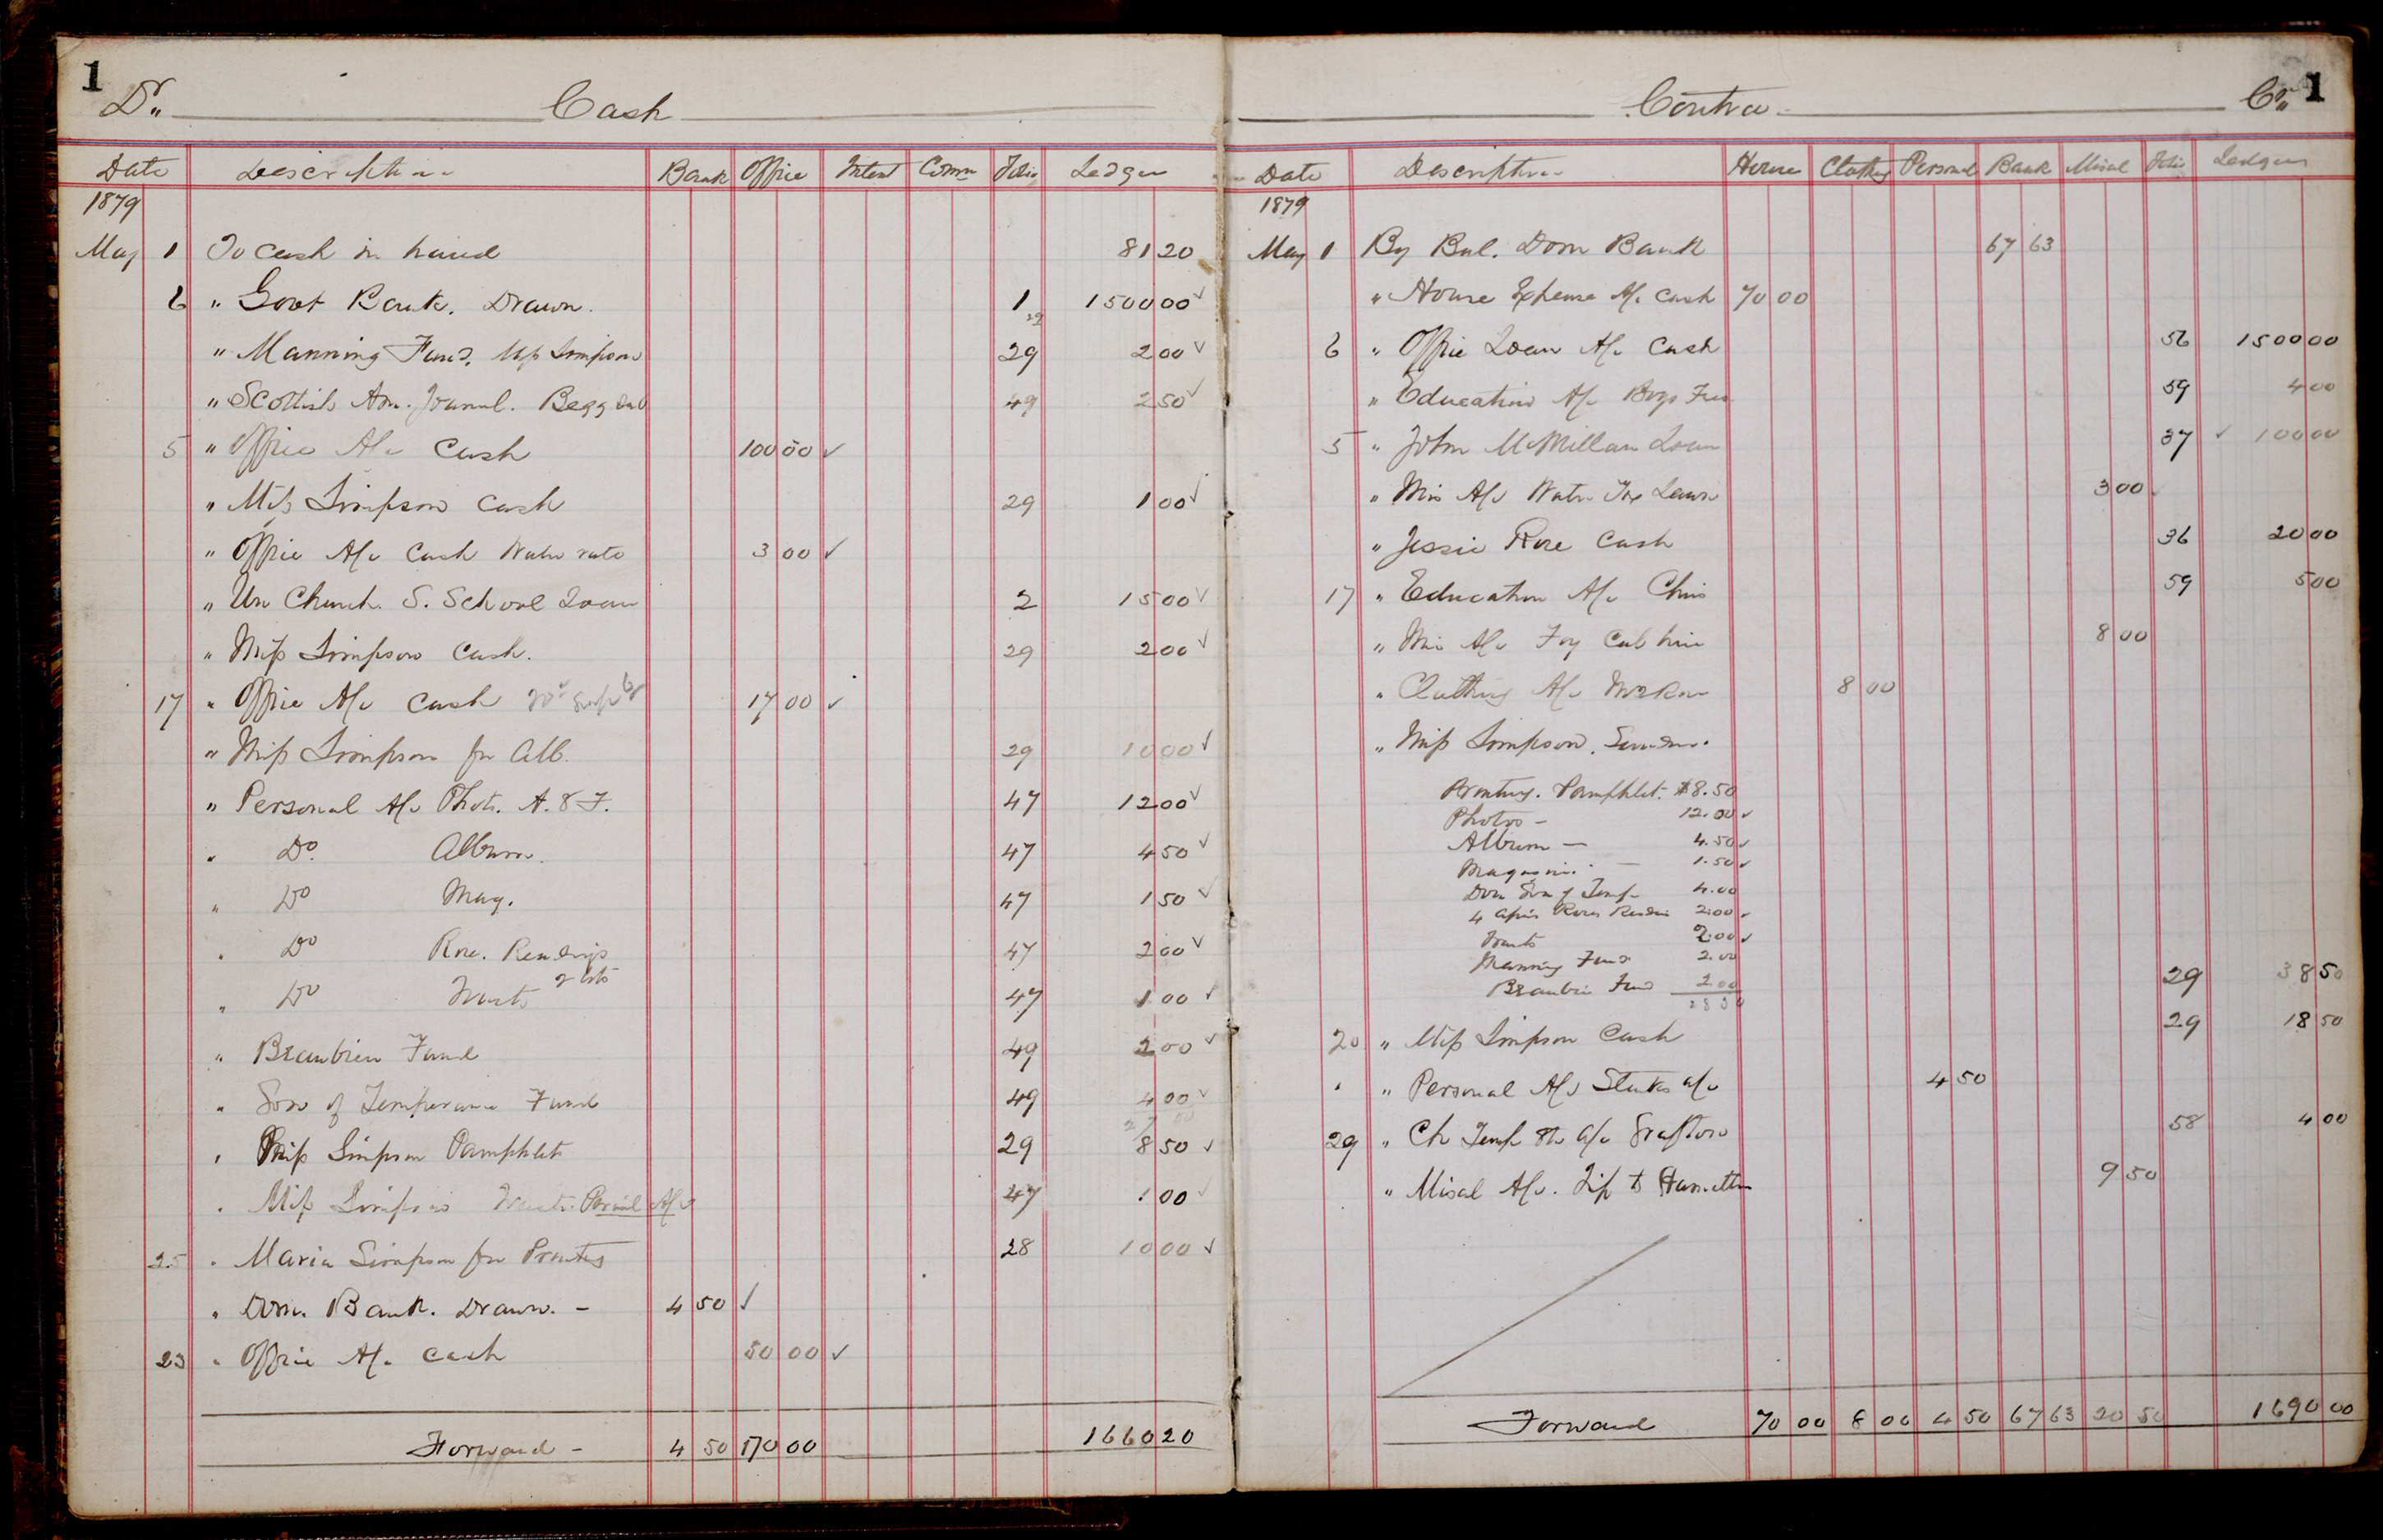 1
Dr. Cash
Date Description Bank Office Intrst Comm Folio Ledger
1879
May 1 To Cash in hand 81 20
6 " Govt Bank. Drawn. 1 1500 00 ✓
29
" Manning Fund. Miss Simpson 29 2 00 ✓
" Scottish Am. Journal. Begg 49 2 50 ✓
5 " Office A/c Cash 100 00 ✓
" Miss Simpson Cash 29 1 00 ✓
" Office A/c Cash Water rate 3 00 ✓
" Un Church. S. School Loan 2 15 00 ✓
" Miss Simpson Cash. 29 2 00 ✓
17 " Office A/c Cash 17 00 ✓
" Miss Simpson for Alb. 29 10 00 ✓
" Personal A/c Photo. A. & F. 47 12 00 ✓
" Do. Album. 47 4 50 ✓
" Do Mag. 47 1 50 ✓
" Do Rose. Readings 47 2 00 ✓
" Do 47 1 00 ✓
" Beaubien Fund 49 2 00 ✓
" Sons of Temperance Fund 49 4 00 ✓
" Miss Simpson Pamphlets 29 8 50 ✓
" Miss Simpson A/c 47 1 00 ✓
25 " Maria Simpson for Printing 28 10 00 ✓
" Dom. Bank. Drawn. - 4 50 ✓
23 " Office A/c Cash 50 00 ✓
Forward - 4 50 170 00 1660 20
1
Contra Cr.
Date Description House Clothing Personal Bank Miscl Folio Ledger
1879
May 1 By Bal. Dom Bank 67 63
" House Expense A/c Cash 70 00
6 " Office Loan A/c Cash 56 1500 00
" Education A/c Boys Fees 59 4 00
5 " John McMillan Loan 37 ✓ 100 00
" Mis A/c Water Tax Lawn 3 00
" Jessie Rose Cash 36 20 00
17 " Education A/c Chris 59 5 00
" Mis A/c Foy Cab hire 8 00
" Clothing A/c 8 00
" Miss Simpson. Sundries.
Printing. Pamphlet. $8.50
Photos - 12.00 ✓
Album - 4.50 ✓
Magazine. - 1.50 ✓
Don Son of Temp - 4.00
4 Roses Readin 2.00 ✓
2.00 ✓
Manning Fund 2.00
Beaubien Fund 2.00
29 38 50
20 " Miss Simpson Cash 29 18 50
" " Personal A/c a/c 4 50
29 " Ch Temp St a/c Grafton 58 4 00
" Miscl A/c. to Hamilton 9 50
Forward 70 00 8 00 4 50 67 63 20 50 1690 00